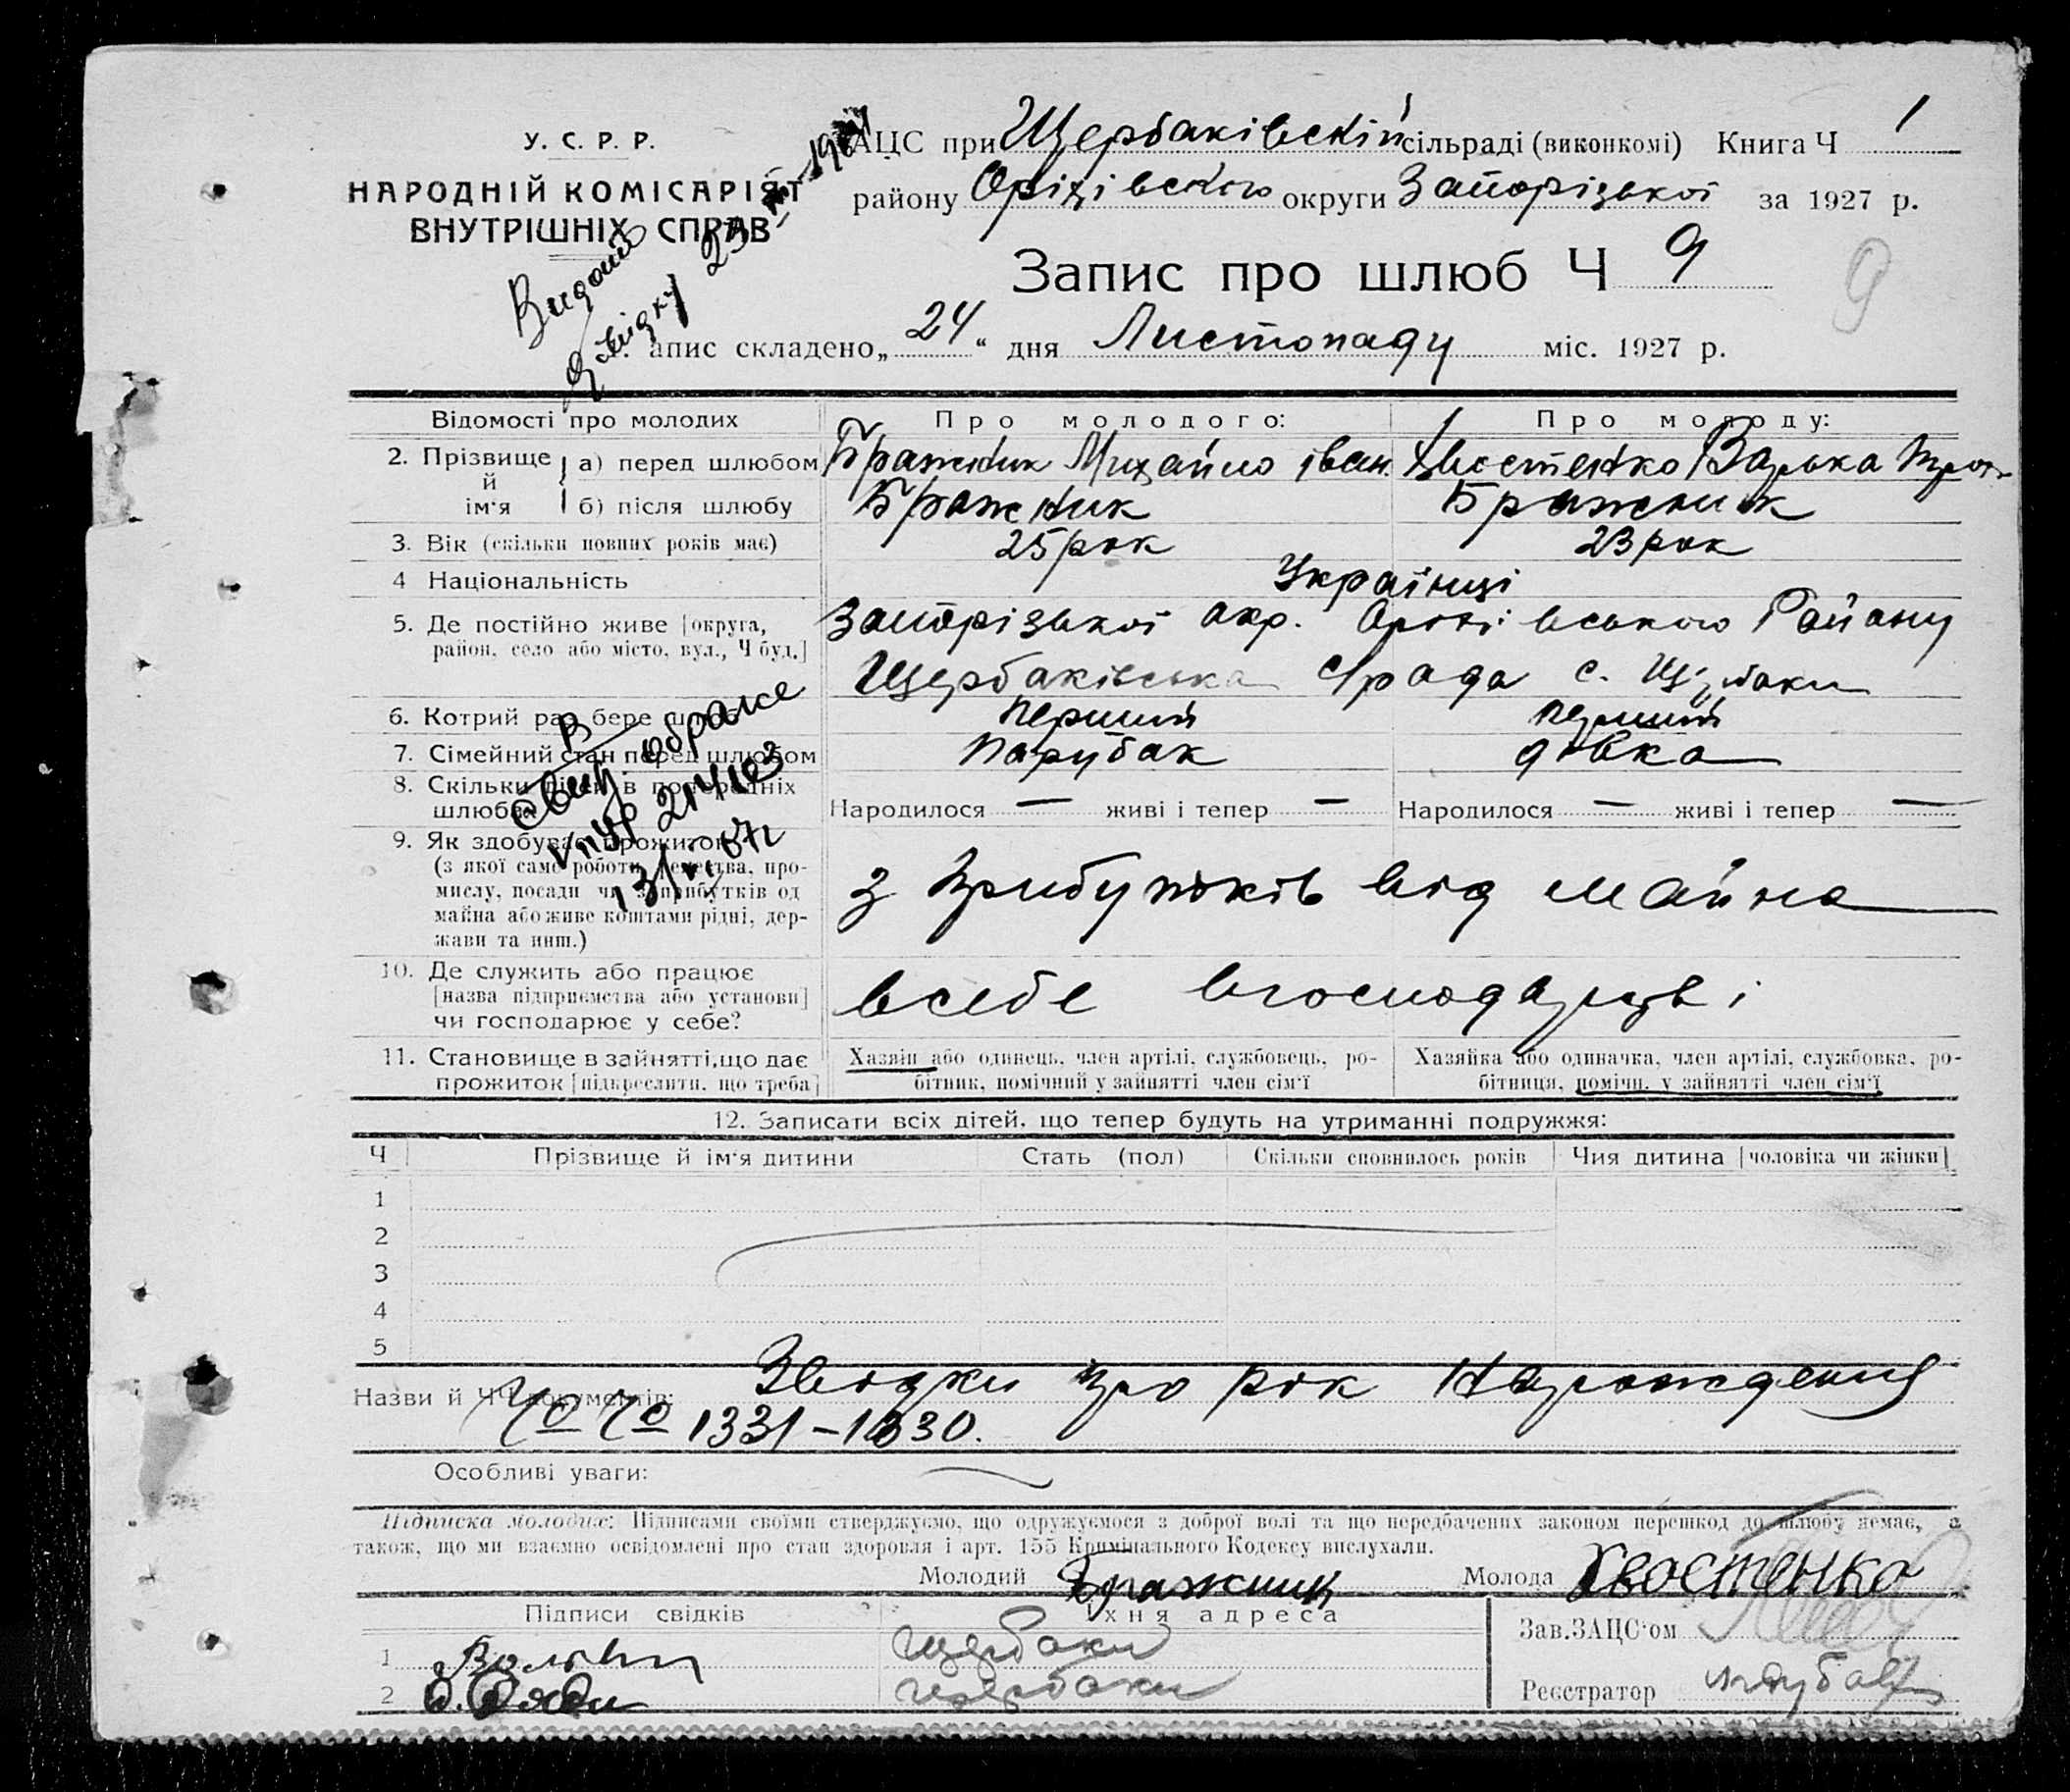 У. С. Р. Р.
НАРОДНІЙ КОМІСАРІЯТ
ВНУТРІШНІХ СПРАВ
ЗАЦС при Щербаківській сільраді (виконкомі) Книга Ч 1
району Оріхівского округи Запорізької за 1927 р.
Запис про шлюб Ч 9
9
апис складено „24“ дня Листопаду міс. 1927 р.
Видано
Відомості про молодих Про молодого: Про молоду:
2. Прізвище й ім'я а) перед шлюбом Бражник Михайло іван. Хвостенко Варька
б) після шлюбу Бражник Бражник
3. Вік (скільки повних років має) 25 рок 23 рок
4 Національність Українці
5. Де постійно живе [округа, район, село або місто, вул., Ч буд.] Запорізької окр. Оріхівського Району
Щербаківська с. Щербаки
6. Котрий раз бере шлюб Перший Перший
7. Сімейний стан перед шлюбом Парубак дівка
8. Скільки дітей в попередніх шлюбах Народилося — живі і тепер — Народилося — живі і тепер —
9. Як здобуває прожиток
(з якої саме роботи, ремества, про-
мислу, посади чи з прибутків од
майна або живе коштами рідні, дер-
жави та инш.)
з прибутків від майна
10. Де служить або працює
[назва підприємства або установи]
чи господарює у себе?
всебе вгосподарстві
11. Становище в зайнятті, що дає
прожиток [підкреслити, що треба]
Хазяїн або одинець, член артілі, службовець, ро-
бітник, помічний у зайнятті член сім'ї
Хазяйка або одиначка, член артілі, службовка, ро-
бітниця, помічн. у зайнятті член сім'ї
12. Записати всіх дітей, що тепер будуть на утриманні подружжя:
Ч Прізвище й ім'я дитини Стать (пол) Скільки сповнилось років Чия дитина [чоловіка чи жінки]
1
2
3
4
5
Назви й ЧЧ документів: Звідки про рік Нарождения
№ № 1331-1330.
Особливі уваги:
Підписка молодих: Підписами своїми стверджуємо, що одружуємося з доброї волі та що передбачених законом перешкод до шлюбу немає, а
також, що ми взаємно освідомлені про стан здоровля і арт. 155 Кримінального Кодексу вислухали.
Молодий Бражник Молода Хвостенко
Підписи свідків Їхня адреса
Зав.ЗАЦС'ом
1 Щербаки
2 Щербаки
Реєстратор